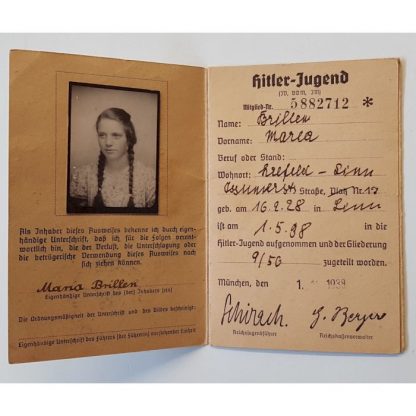 Als Inhaber dieses Ausweises bekenne ich durch eigen-
händige Unterschrift, daß ich für die Folgen verant-
wortlich bin, die der Verlust, die Unterschlagung oder
die betrügerische Verwendung dieses Ausweises nach
sich ziehen können.
Maria Brillen
Eigenhändige Unterschrift des (der) Inhabers (in)
Die Ordnungsmäßigkeit der Unterschrift und des Bildes bescheinigt:
Eigenhändige Unterschrift des Führers (der Führerin) vorstehender Einheit
Hitler-Jugend
Mitglied-Nr. 5882712 *
Name: Brillen
Vorname: Maria
Beruf oder Stand:
Wohnort: Krefeld-Linn
Straße, Platz Nr.
geb. am 16.2.28 in Linn
ist am 1.5.38 in die
Hitler-Jugend aufgenommen und der Gliederung
9/56 zugeteilt worden.
München, den 1. 1939
Schirach. G. Berger
Reichsjugendführer Reichskassenverwalter